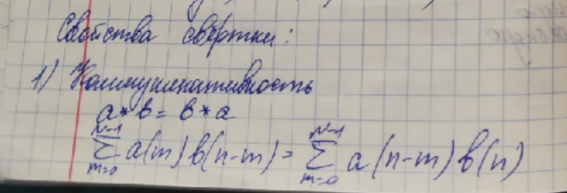 Свойства свёртки:
1) Коммуникативность
a * b = b * a
N-1 ∑ m=0 a(m) b(n-m) = N-1 ∑ m=0 a(n-m) b(n)